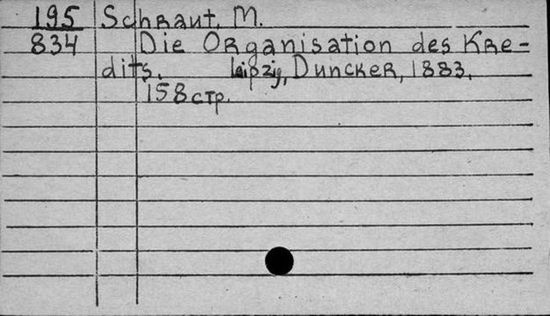 195 Schraut, M.
834 Die Organisation des Kre-
dits. Leipzig, Duncker, 1883.
158 стр.